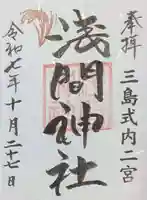 奉拝 三島式内二宮
浅間神社
令和七年十月二十七日